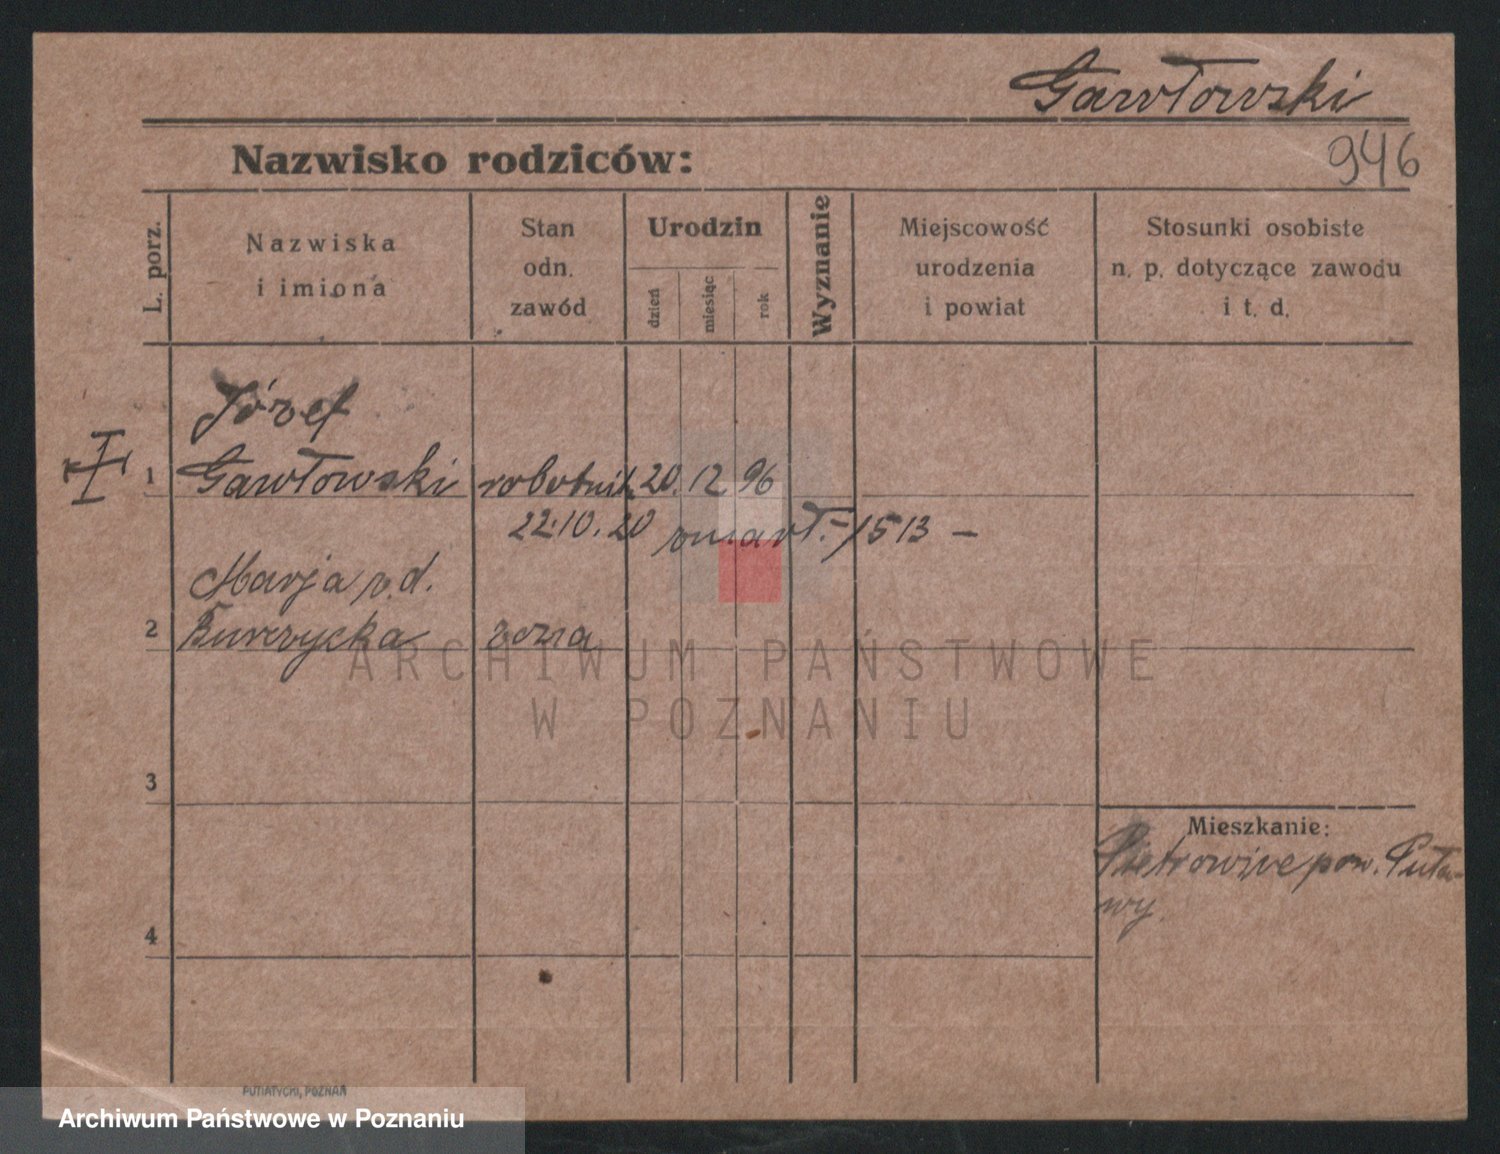 Gawłowski
946
Nazwisko rodziców:
L. porz.
Nazwiska
i imiona
Stan
odn.
zawód
Urodzin
dzień
miesiąc
rok
Wyznanie
Miejscowość
urodzenia
i powiat
Stosunki osobiste
n. p. dotyczące zawodu
i t. d.
Józef
1 Gawłowski robotnik 20. 12 96
22.10.20 zmarł.-/1513 -
Marja z. d.
2 żona
ARCHIWUM PAŃSTWOWE
W POZNANIU
3
Mieszkanie:
Pietrowice pow. Puła-
wy.
4
PUTIATYCKI, POZNAŃ
Archiwum Państwowe w Poznaniu